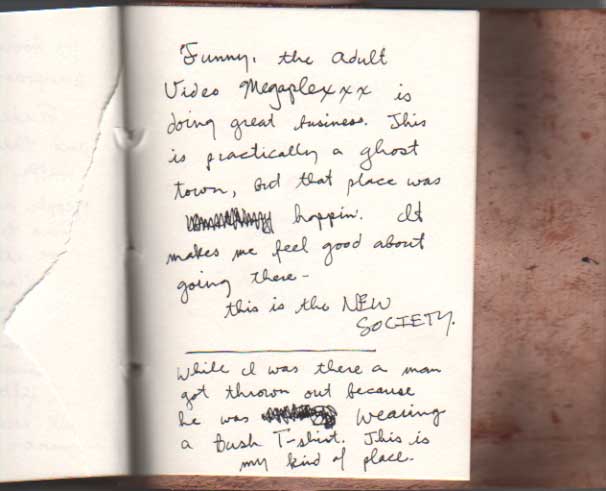 Funny, the adult
Video Megaplexxx is
doing great business. This
is practically a ghost
town, but that place was
happin. It
makes me feel good about
going there -
this is the NEW
SOCIETY.
While I was there a man
got thrown out because
he was wearing
a Bush T-shirt. This is
my kind of place.